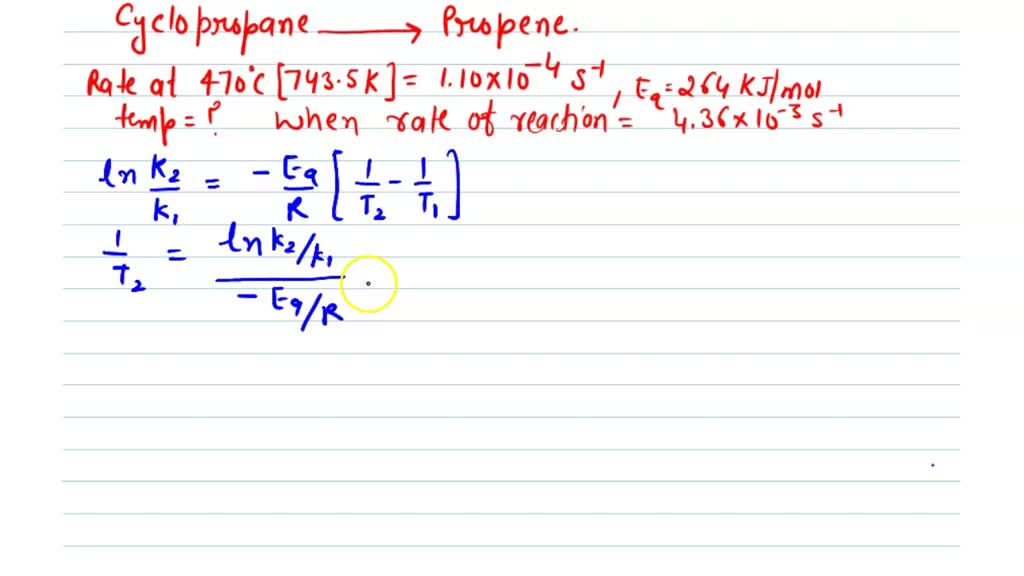 Cyclopropane ⟶ Propene.
Rate at 470°C [743.5K] = 1.10×10⁻⁴ s⁻¹, Ea = 264 KJ/mol
temp = ? When rate of reaction = 4.36×10⁻³ s⁻¹
ln K₂/K₁ = - Ea/R [1/T₂ - 1/T₁]
1/T₂ = ln K₂/K₁ / - Ea/R